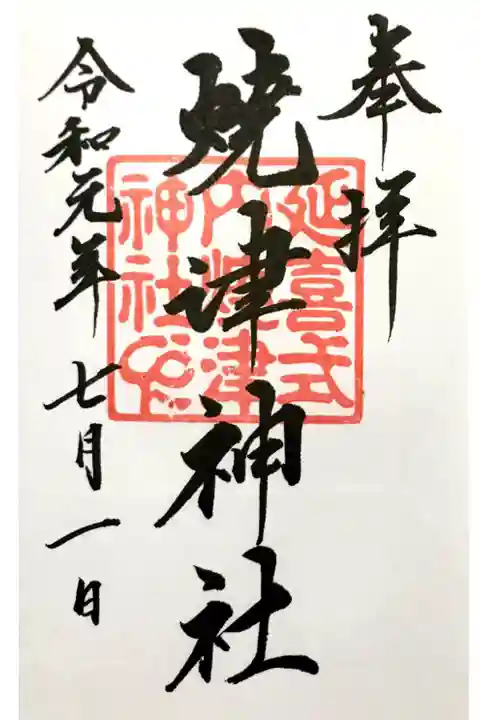 奉拝
焼津神社
延喜式
内焼津
神社印
令和元年七月一日